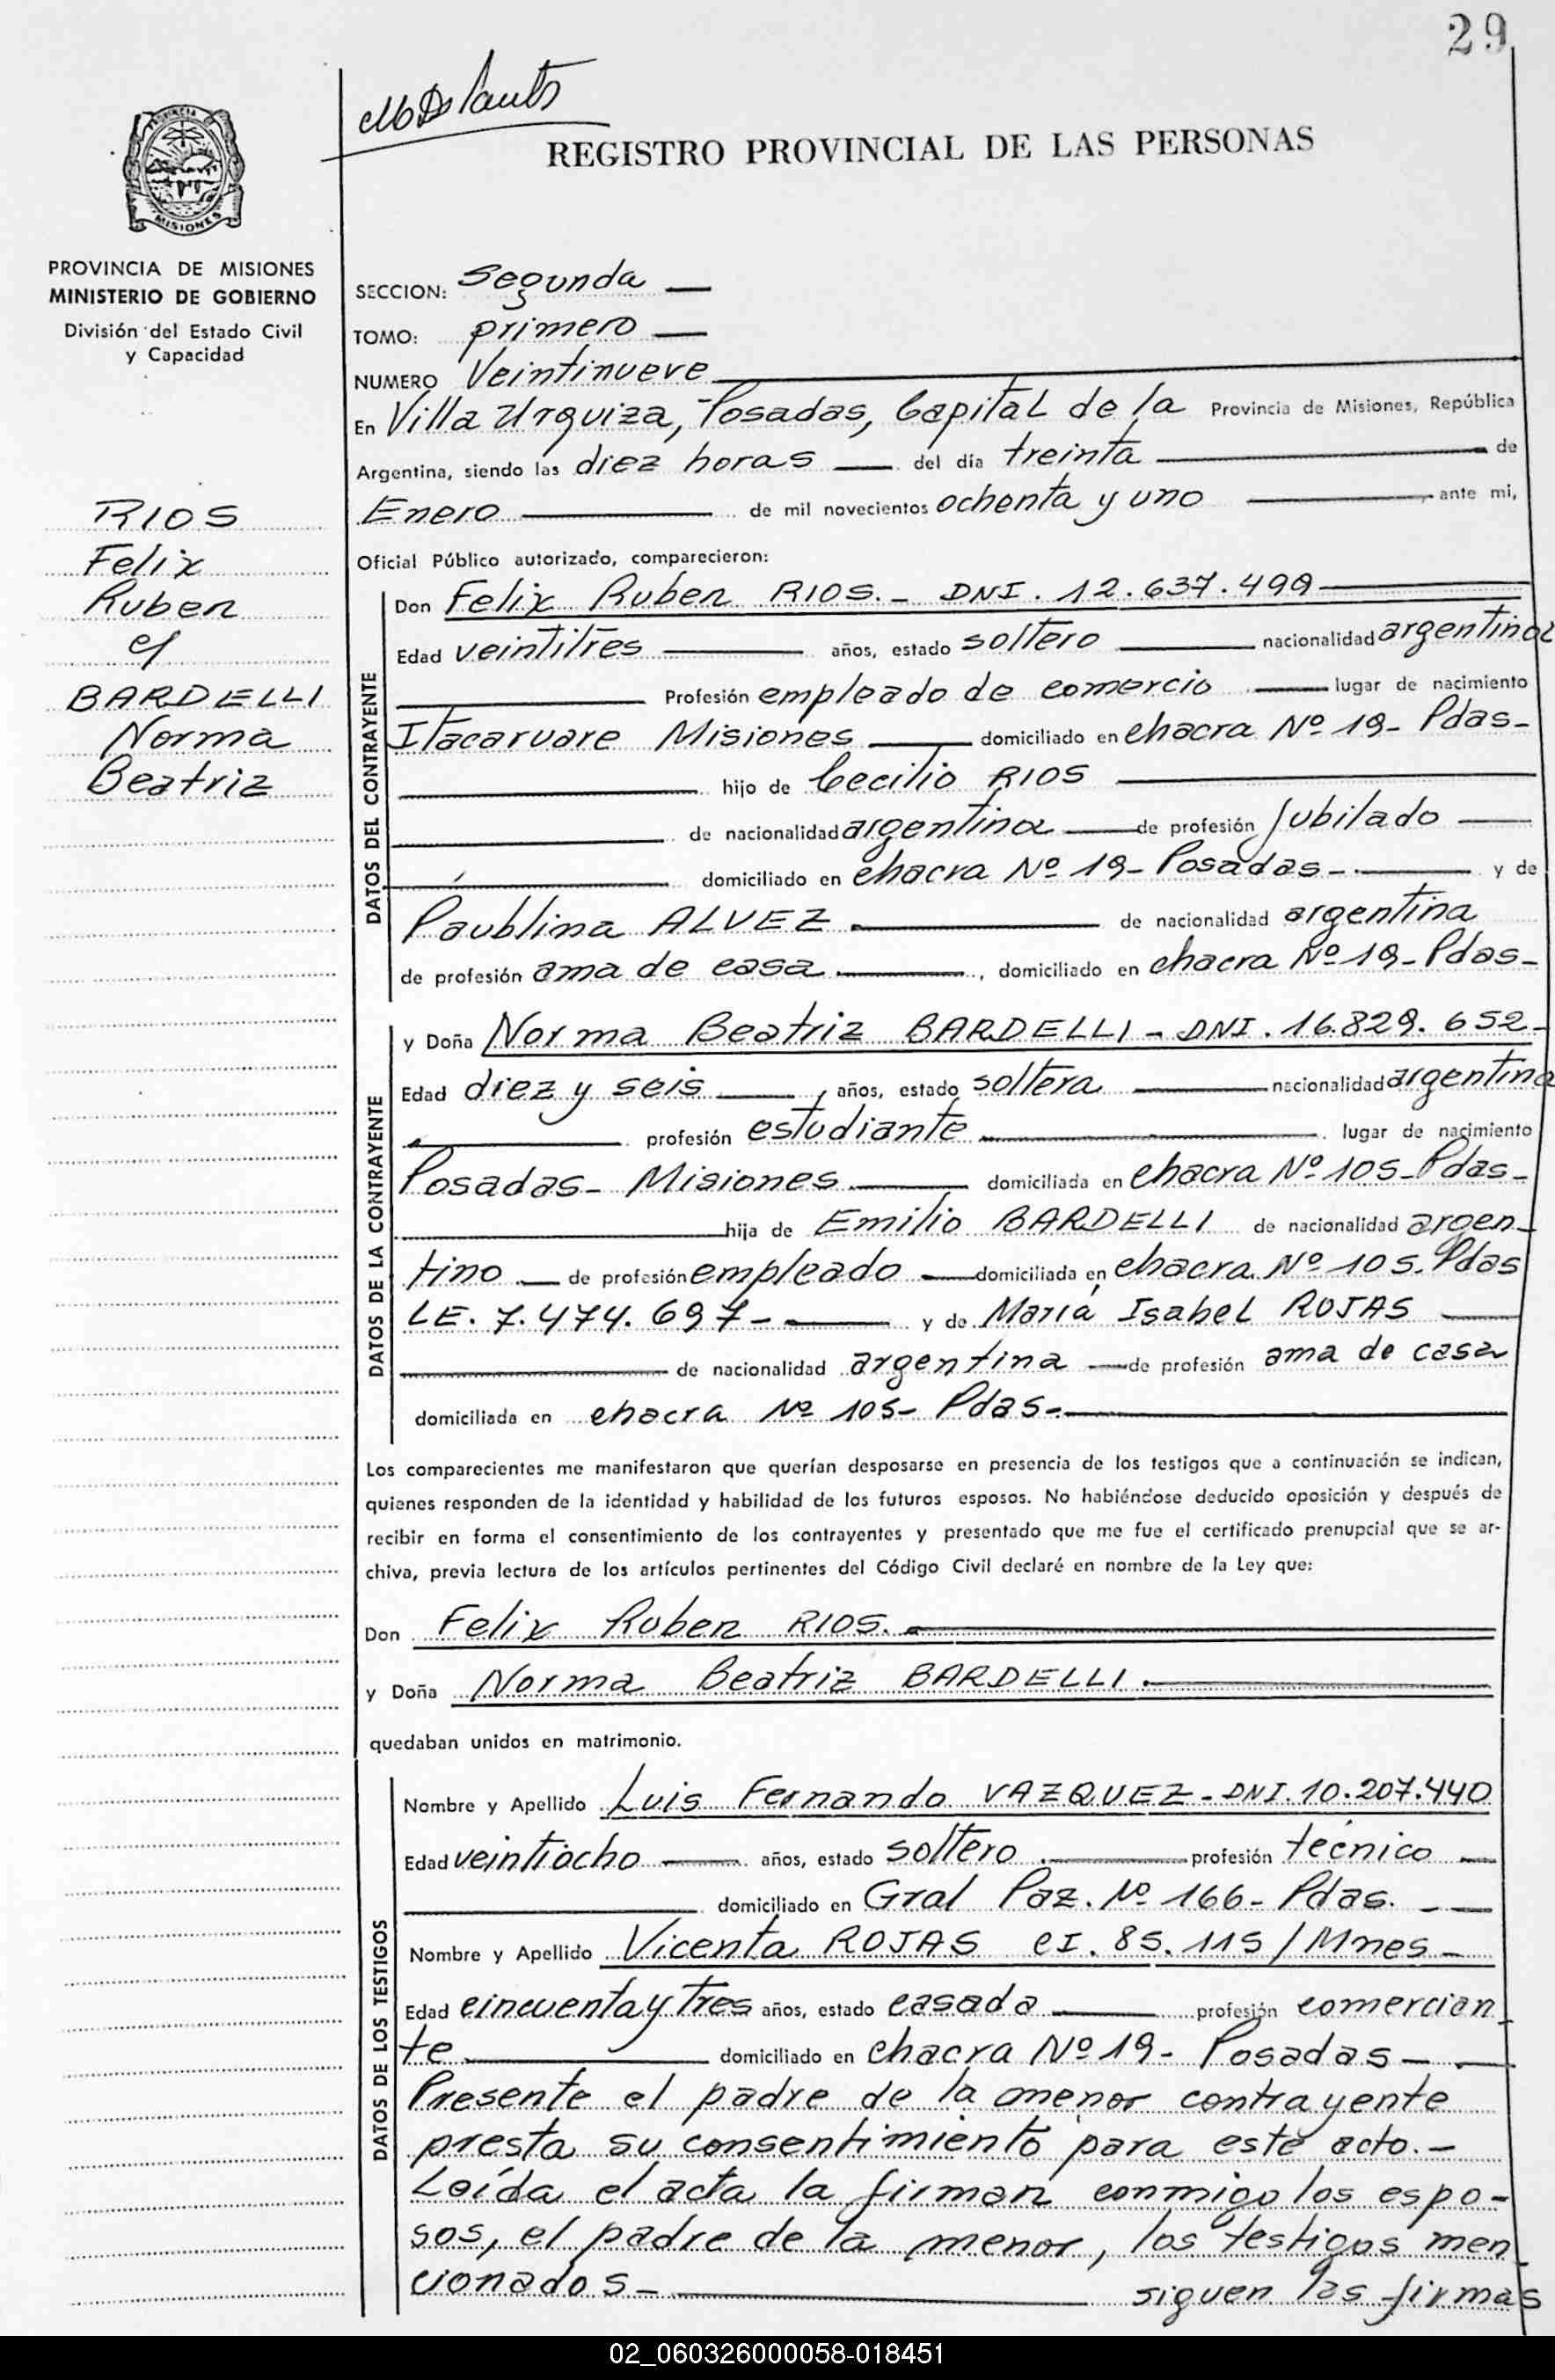 29
REGISTRO PROVINCIAL DE LAS PERSONAS
PROVINCIA
MISIONES
PROVINCIA DE MISIONES
MINISTERIO DE GOBIERNO
División del Estado Civil
y Capacidad
RIOS
Felix
Ruben
c/
BARDELLI
Norma
Beatriz
SECCION: Segunda
TOMO: primero
NUMERO Veintinueve
En Villa Urquiza, Posadas, Capital de la Provincia de Misiones, República
Argentina, siendo las diez horas del día treinta de
Enero de mil novecientos ochenta y uno ante mi,
Oficial Público autorizado, comparecieron:
DATOS DEL CONTRAYENTE
Don Felix Ruben RIOS.- DNI. 12.637.499
Edad veintitres años, estado soltero nacionalidad argentina
Profesión empleado de comercio lugar de nacimiento
Itacaruare Misiones domiciliado en chacra Nº 19- Pdas-
hijo de Cecilio RIOS
de nacionalidad argentina de profesión jubilado
domiciliado en chacra Nº 19- Posadas- y de
Paublina ALVEZ de nacionalidad argentina
de profesión ama de casa, domiciliado en chacra Nº 19- Pdas-
DATOS DE LA CONTRAYENTE
y Doña Norma Beatriz BARDELLI- DNI. 16.829.652-
Edad diez y seis, años, estado soltera nacionalidad argentina
profesión estudiante lugar de nacimiento
Posadas- Misiones domiciliada en chacra Nº 105- Pdas-
hija de Emilio BARDELLI de nacionalidad argen-
tino de profesión empleado domiciliada en chacra Nº 105. Pdas
LE. 7.474.697- y de María Isabel ROJAS
de nacionalidad argentina de profesión ama de casa
domiciliada en chacra Nº 105- Pdas-
Los comparecientes me manifestaron que querían desposarse en presencia de los testigos que a continuación se indican,
quienes responden de la identidad y habilidad de los futuros esposos. No habiéndose deducido oposición y después de
recibir en forma el consentimiento de los contrayentes y presentado que me fue el certificado prenupcial que se ar-
chiva, previa lectura de los artículos pertinentes del Código Civil declaré en nombre de la Ley que:
Don Felix Ruben RIOS.
y Doña Norma Beatriz BARDELLI.
quedaban unidos en matrimonio.
DATOS DE LOS TESTIGOS
Nombre y Apellido Luis Fernando VAZQUEZ- DNI. 10.207.440
Edad veintiocho años, estado soltero profesión técnico
domiciliado en Gral Paz. Nº 166- Pdas.
Nombre y Apellido Vicenta ROJAS CI. 85.115/Mnes-
Edad cincuenta y tres años, estado casada profesión comercian
te domiciliado en chacra Nº 19- Posadas-
Presente el padre de la menor contrayente
presta su consentimiento para este acto.-
Leída el acta la firman conmigo los espo-
sos, el padre de la menor, los testigos men
cionados- siguen las firmas
02_060326000058-018451